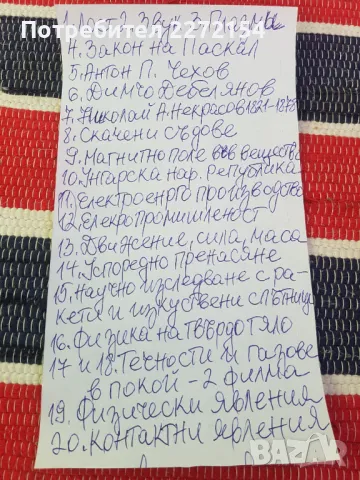 Потребител 5072154
2. Звук 3.
4. Закон на Паскал
5. Антон П. Чехов
6. Димчо Дебелянов
7. Николай А. Некрасов 1821-1878
8. Скачени съдове
9. Магнитно поле във вещество
10. Унгарска нар. Република
11. Електроенерго производство
12. Елекропромишленост
13. Движение, сила, маса
14. Успоредно пренасяне
15. Научно изследване с ра-
кети и изкуствени спътници
16. Физика на твърдо тяло
17 и 18. Течности и газове
в покой - 2 филма
19. Физически явления
20. Контактни явления
BAZAR